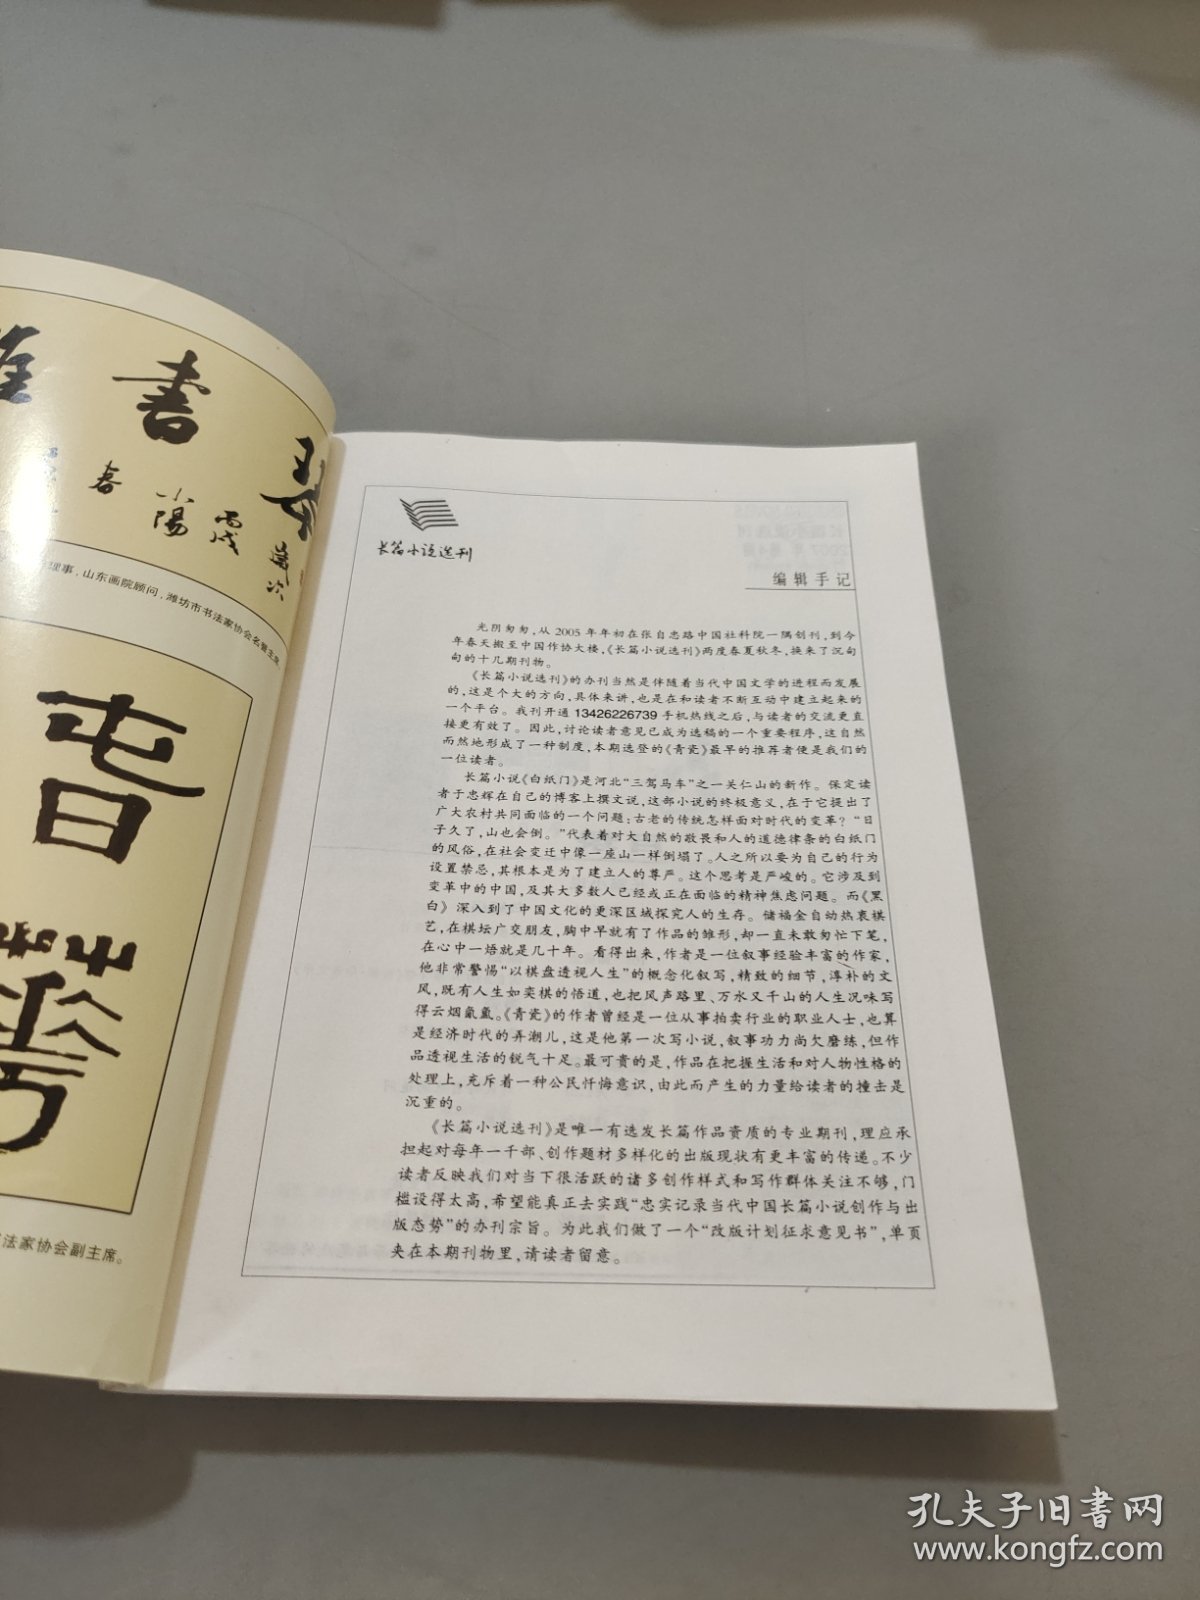 書
春
小陽
歲
山东画院顾问，潍坊市书法家协会名誉主席
法家协会副主席。
长篇小说选刊
编辑手记
光阴匆匆，从 2005 年年初在张自忠路中国社科院一隅创刊，到今
年春天搬至中国作协大楼，《长篇小说选刊》两度春夏秋冬，换来了沉甸
甸的十几期刊物。
《长篇小说选刊》的办刊当然是伴随着当代中国文学的进程而发展
的，这是个大的方向，具体来讲，也是在和读者不断互动中建立起来的
一个平台。我刊开通 13426226739 手机热线之后，与读者的交流更直
接更有效了。因此，讨论读者意见已成为选稿的一个重要程序，这自然
而然地形成了一种制度，本期选登的《青瓷》最早的推荐者便是我们的
一位读者。
长篇小说《白纸门》是河北“三驾马车”之一关仁山的新作。保定读
者于忠辉在自己的博客上撰文说，这部小说的终极意义，在于它提出了
广大农村共同面临的一个问题：古老的传统怎样面对时代的变革？“日
子久了，山也会倒。”代表着对大自然的敬畏和人的道德律条的白纸门
的风俗，在社会变迁中像一座山一样倒塌了。人之所以要为自己的行为
设置禁忌，其根本是为了建立人的尊严。这个思考是严峻的。它涉及到
变革中的中国，及其大多数人已经或正在面临的精神焦虑问题。而《黑
白》深入到了中国文化的更深区域探究人的生存。储福金自动热衷棋
艺，在棋坛广交朋友，胸中早就有了作品的雏形，却一直未敢匆忙下笔，
在心中一悟就是几十年。看得出来，作者是一位叙事经验丰富的作家，
他非常警惕“以棋盘透视人生”的概念化叙写，精致的细节，淳朴的文
风，既有人生如奕棋的悟道，也把风声路里、万水又千山的人生况味写
得云烟氤氲。《青瓷》的作者曾经是一位从事拍卖行业的职业人士，也算
是经济时代的弄潮儿，这是他第一次写小说，叙事功力尚欠磨练，但作
品透视生活的锐气十足。最可贵的是，作品在把握生活和对人物性格的
处理上，充斥着一种公民忏悔意识，由此而产生的力量给读者的撞击是
沉重的。
《长篇小说选刊》是唯一有选发长篇作品资质的专业期刊，理应承
担起对每年一千部、创作题材多样化的出版现状有更丰富的传递。不少
读者反映我们对当下很活跃的诸多创作样式和写作群体关注不够，门
槛设得太高，希望能真正去实践“忠实记录当代中国长篇小说创作与出
版态势”的办刊宗旨。为此我们做了一个“改版计划征求意见书”，单页
夹在本期刊物里，请读者留意。
孔夫子旧书网
www.kongfz.com